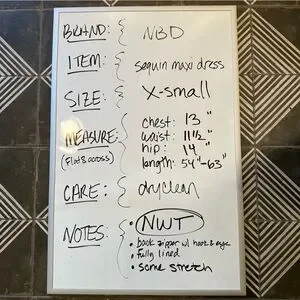 BRAND: NBD
ITEM: sequin maxi dress
SIZE: X-small
MEASURE: chest: 13"
(Flat & across) waist: 11 1/2"
hip: 14"
length: 54"-63"
CARE: dryclean
NOTES: • NWT
• back zipper w/ hook & eye
• fully lined
• some stretch